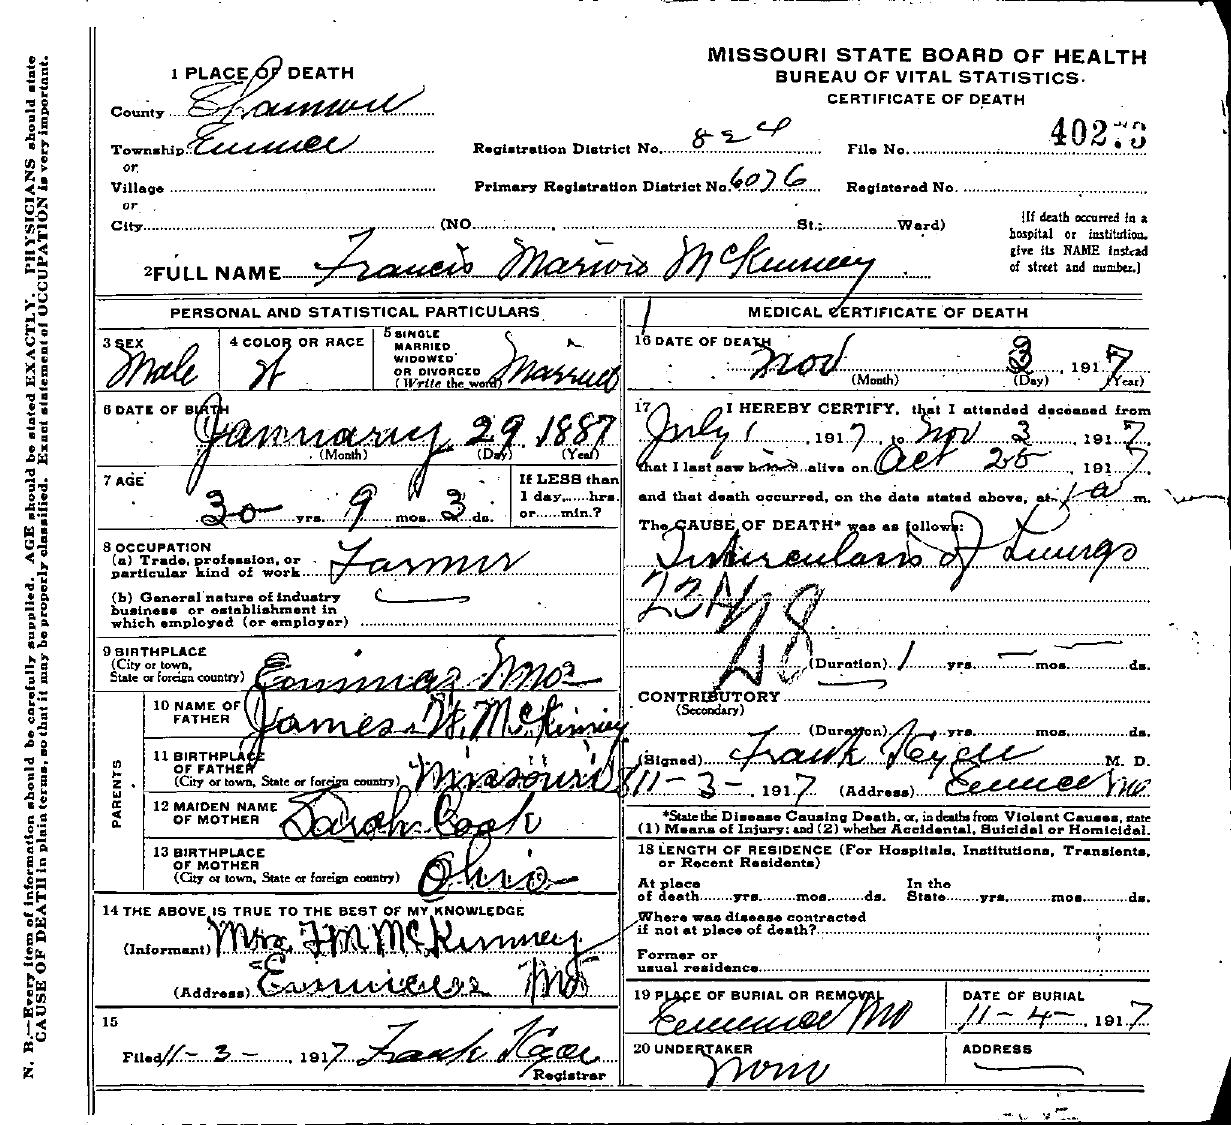 MISSOURI STATE BOARD OF HEALTH
BUREAU OF VITAL STATISTICS.
CERTIFICATE OF DEATH
1 PLACE OF DEATH
County
Township Eminence
or
Village
or
City (NO. St.; Ward)
Registration District No. 824
File No. 402
Primary Registration District No. 6076
Registered No.
(If death occurred in a
hospital or institution,
give its NAME instead
of street and number.)
2 FULL NAME Francis Marion McKinney
PERSONAL AND STATISTICAL PARTICULARS
3 SEX
Male
4 COLOR OR RACE
W
5 SINGLE
MARRIED
WIDOWED
OR DIVORCED
(Write the word) Married
6 DATE OF BIRTH
January 29 1887
(Month) (Day) (Year)
7 AGE
30 yrs. 9 mos. 3 ds.
If LESS than
1 day, hrs.
or min.?
8 OCCUPATION
(a) Trade, profession, or
particular kind of work Farmer
(b) General nature of industry
business or establishment in
which employed (or employer)
9 BIRTHPLACE
(City or town,
State or foreign country) Mo
PARENTS
10 NAME OF
FATHER James W. McKinney
11 BIRTHPLACE
OF FATHER
(City or town, State or foreign country) Missouri
12 MAIDEN NAME
OF MOTHER Sarah Cook
13 BIRTHPLACE
OF MOTHER
(City or town, State or foreign country) Ohio
14 THE ABOVE IS TRUE TO THE BEST OF MY KNOWLEDGE
(Informant) Mrs. F M McKinney
(Address) Eminence Mo
15
Filed 11-3-, 1917 Frank
Registrar
MEDICAL CERTIFICATE OF DEATH
16 DATE OF DEATH
Nov 3, 1917
(Month) (Day) (Year)
17 I HEREBY CERTIFY, that I attended deceased from
July 1, 1917, to Nov 3, 1917,
that I last saw him alive on Oct 28, 1917,
and that death occurred, on the date stated above, at 1 a m.
The CAUSE OF DEATH* was as follows:
Tuberculosis of Lungs
28
(Duration) 1 yrs. mos. ds.
CONTRIBUTORY
(Secondary)
(Duration) yrs. mos. ds.
(Signed) Frank M. D.
11-3-, 1917 (Address) Eminence Mo
*State the Disease Causing Death, or, in deaths from Violent Causes, state
(1) Means of Injury; and (2) whether Accidental, Suicidal or Homicidal.
18 LENGTH OF RESIDENCE (For Hospitals, Institutions, Transients,
or Recent Residents)
At place In the
of death yrs. mos. ds. State yrs. mos. ds.
Where was disease contracted
if not at place of death?
Former or
usual residence
19 PLACE OF BURIAL OR REMOVAL
Eminence Mo
DATE OF BURIAL
11-4-, 1917
20 UNDERTAKER
None
ADDRESS
N. B.—Every item of information should be carefully supplied. AGE should be stated EXACTLY. PHYSICIANS should state
CAUSE OF DEATH in plain terms, so that it may be properly classified. Exact statement of OCCUPATION is very important.